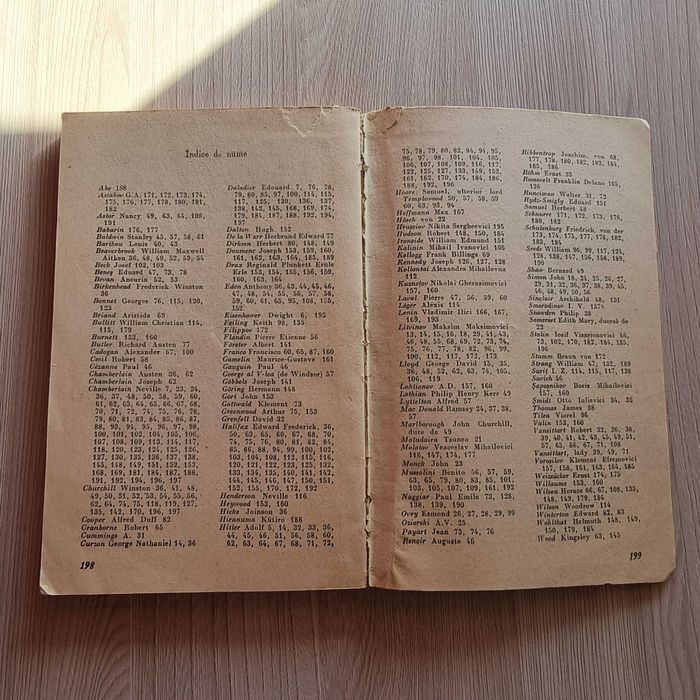 Indice de nume
Abe 188
Astahov G.A. 171, 172, 173, 174,
175, 176, 177, 178, 180, 181,
182
Astor Nancy 49, 63, 64, 108,
191
Babarin 176, 177
Baldwin Stanley 45, 57, 58, 61
Barthou Louis 40, 43
Beaverbrook William Maxwell
Aitken 36, 48, 49, 52, 53, 54
Beck Josef 102, 103
Beneș Eduard 47, 73, 78
Bevan Aneurin 52, 53
Birkenhead Frederick Winston
36
Bonnet Georges 76, 115, 120,
123
Briand Aristide 69
Bullitt William Christian 114,
115, 179
Burnett 153, 160
Butler Richard Austen 77
Cadogan Alexander 67, 100
Cecil Robert 58
Cézanne Paul 46
Chamberlain Austen 36, 62
Chamberlain Joseph 62
Chamberlain Neville 7, 23, 24,
36, 37, 48, 50, 58, 59, 60,
61, 62, 63, 64, 65, 66, 67, 68,
70, 71, 72, 74, 75, 76, 78,
79, 80, 81, 83, 84, 85, 86, 87,
88, 93, 94, 95, 96, 97, 98,
100, 101, 102, 104, 105, 106,
107, 108, 109, 113, 114, 117,
118, 120, 123, 124, 125, 126,
127, 130, 135, 136, 137, 138,
145, 148, 149, 151, 152, 153,
168, 169, 181, 184, 187, 188,
191, 192, 194, 196, 197
Churchill Winston 36, 41, 48,
49, 50, 51, 52, 53, 54, 55, 56,
62, 64, 74, 75, 118, 119, 127,
135, 142, 170, 196, 197
Cooper Alfred Duff 82
Cranborne Robert 65
Cummings A. 31
Curzon George Nathaniel 14, 36
198
Daladier Edouard 7, 76, 78,
79, 80, 85, 97, 100, 114, 115,
117, 125, 130, 136, 137,
138, 142, 145, 168, 169, 174,
179, 184, 187, 188, 192, 194,
197
Dalton Hugh 152
De la Warr Herbrand Edward 77
Dirksen Herbert 80, 148, 149
Doumenc Joseph 153, 159,
160, 161, 162, 163, 164, 185, 189
Drax Reginald Plunkett Ernle
Erle 153, 154, 155, 156, 159,
160, 163, 164
Eden Anthony 36, 43, 44, 45, 46,
47, 48, 54, 55, 56, 57, 58,
59, 60, 61, 65, 95, 108, 135,
152
Eisenhower Dwight 6, 195
Feiling Keith 98, 135
Filippov 172
Flandin Pierre Etienne 56
Förster Albert 141
Franco Francisco 60, 65, 87, 160
Gamelin Maurice-Gustave 161
Gauguin Paul 46
George al V-lea (de Windsor) 57
Göbbels Joseph 141
Göring Hermann 148
Gort John 153
Gottwald Klement 73
Greenwood Arthur 75, 153
Grenfell David 32
Halifax Edward Frederick, 36,
50, 63, 65, 66, 67, 68, 70,
74, 75, 76, 80, 81, 82, 84,
85, 86, 94, 99, 100, 102,
103, 104, 108, 112, 115, 116,
120, 121, 122, 123, 125, 132,
133, 134, 135, 140, 141, 142,
144, 145, 146, 147, 150, 151,
152, 155, 170, 172, 192
Henderson Neville 116
Heywood 153, 160
Hicks Joinson 36
Hiranuma Kiitiro 188
Hitler Adolf 5, 14, 32, 33, 36,
44, 45, 46, 51, 56, 58, 60,
62, 63, 64, 67, 68, 71, 72,
75, 78, 79, 80, 82, 84, 94, 95,
96, 97, 98, 101, 104, 105,
106, 107, 112, 116, 117, 119,
122, 125, 127, 133, 149, 151,
161, 162, 170, 174, 184, 186,
188, 192, 196
Hoare Samuel, ulterior lord
Templewood 50, 57, 58, 59
60, 63, 93, 94
Hoffmann Max 167
Hösch von 22
Hrusciov Nikita Serghevici 195
Hudson Robert 148, 150, 184
Ironside William Edmund 151
Kalinin Mihail Ivanovici 105
Kellogg Frank Billings 69
Kennedy Joseph 126, 127, 128
Kollontai Alexandra Mihailovna
112
Kuznețov Nikolai Gherasimovici
157, 160
Laval Pierre 47, 56, 59, 60
Léger Alexis 114
Lenin Vladimir Ilici 166, 167,
169, 193
Litvinov Maksim Maksimovici
13, 14, 15, 16, 18, 29, 41, 43,
46, 48, 55, 68, 69, 73, 72, 74,
75, 76, 77, 78, 82, 96, 99,
100, 112, 117, 172, 173
Lloyd George David 15, 35,
36, 48, 52, 62, 63, 74, 105,
106, 119
Loktionov A.D. 157, 160
Lothian Philip Henry Kerr 49
Lyttelton Alfred 57
Mac Donald Ramsay 24, 37, 38,
57
Marlborough John Churchill,
duce de 49
Matuduira Tuneo 21
Molotov Veaceslav Mihailovici
116, 147, 174, 177
Monck John 23
Mussolini Benito 56, 57, 59,
63, 65, 79, 80, 83, 85, 101,
103, 105, 107, 109, 161, 192
Naggiar Paul Emile 73, 128,
138, 139, 190
Ovey Esmond 26, 27, 28, 29, 99
Oziorski A.V. 25
Payart Jean 73, 74, 76
Renoir Auguste 46
Ribbentrop Joachim, von 68,
177, 178, 180, 182, 183, 184,
185, 186
Röhm Ernst 33
Roosevelt Franklin Delano 105,
126
Runciman Walter 31, 72
Rydz-Smigly Eduard 191
Samuel Herbert 48
Schnurre 171, 172, 173, 176,
180, 182
Schulenburg Friedrich, von der
173, 174, 175, 177, 178, 182,
183, 184
Seeds William 96, 99, 117, 126,
128, 138, 147, 156, 158, 189,
190
Shaw Bernard 49
Simon John 18, 24, 25, 26, 27,
29, 31, 32, 36, 37, 38, 39, 45,
46, 48, 49, 50, 56
Sinclair Archibald 48, 151
Smorodinov I. V. 157
Snowden Philip 38
Somerset Edith Mary, ducesă de
22
Stalin Iosif Vissarionovici 46,
73, 102, 170, 182, 184, 185,
196
Stumm Braun von 172
Strang William 47, 132, 189
Surif I. Z. 114, 115, 117, 138
Savich 56
Șapoșnikov Boris Mihailovici
157, 160
Șmidt Otto Iulievici 34, 35
Thomas James 38
Tilea Viorel 96
Valin 153, 160
Vansittart Robert 32, 36, 38,
39, 40, 41, 42, 43, 45, 49, 51,
57, 65, 66, 67, 68, 77, 96
Vansittart, lady 39, 49, 71
Voroșilov Kliment Efremovici
157, 158, 161, 163, 164, 185
Weizsäcker Ernst 174, 175
Willaume 153, 160
Wilson Horace 66, 67, 108, 135,
148, 149, 179, 184
Wilson Woodrow 114
Winterton Edward 82, 83
Wohlthat Helmuth 148, 149,
150, 179, 184
Wood Kingsley 63, 145
199